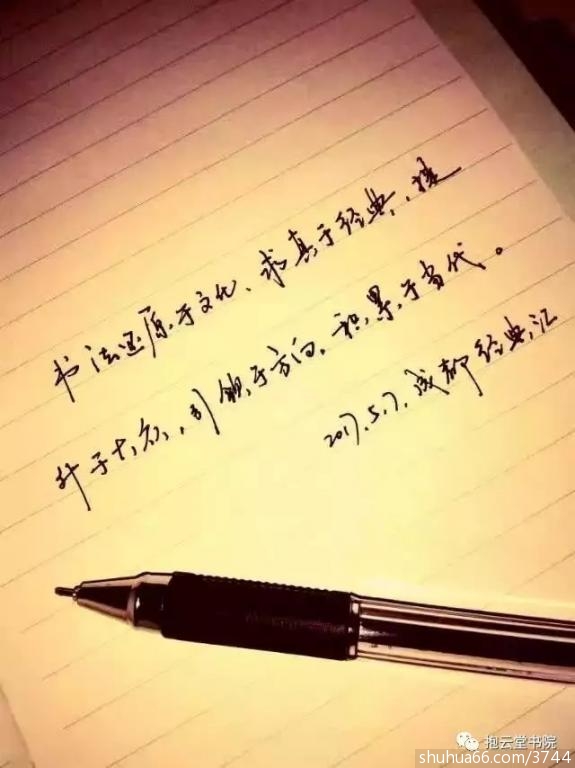 书法还原于文化、求真于经典、提
升于大众、引领于方向、积累于当代。
2017.5.7.成都经典汇
抱云堂书院
shuhua66.com/3744